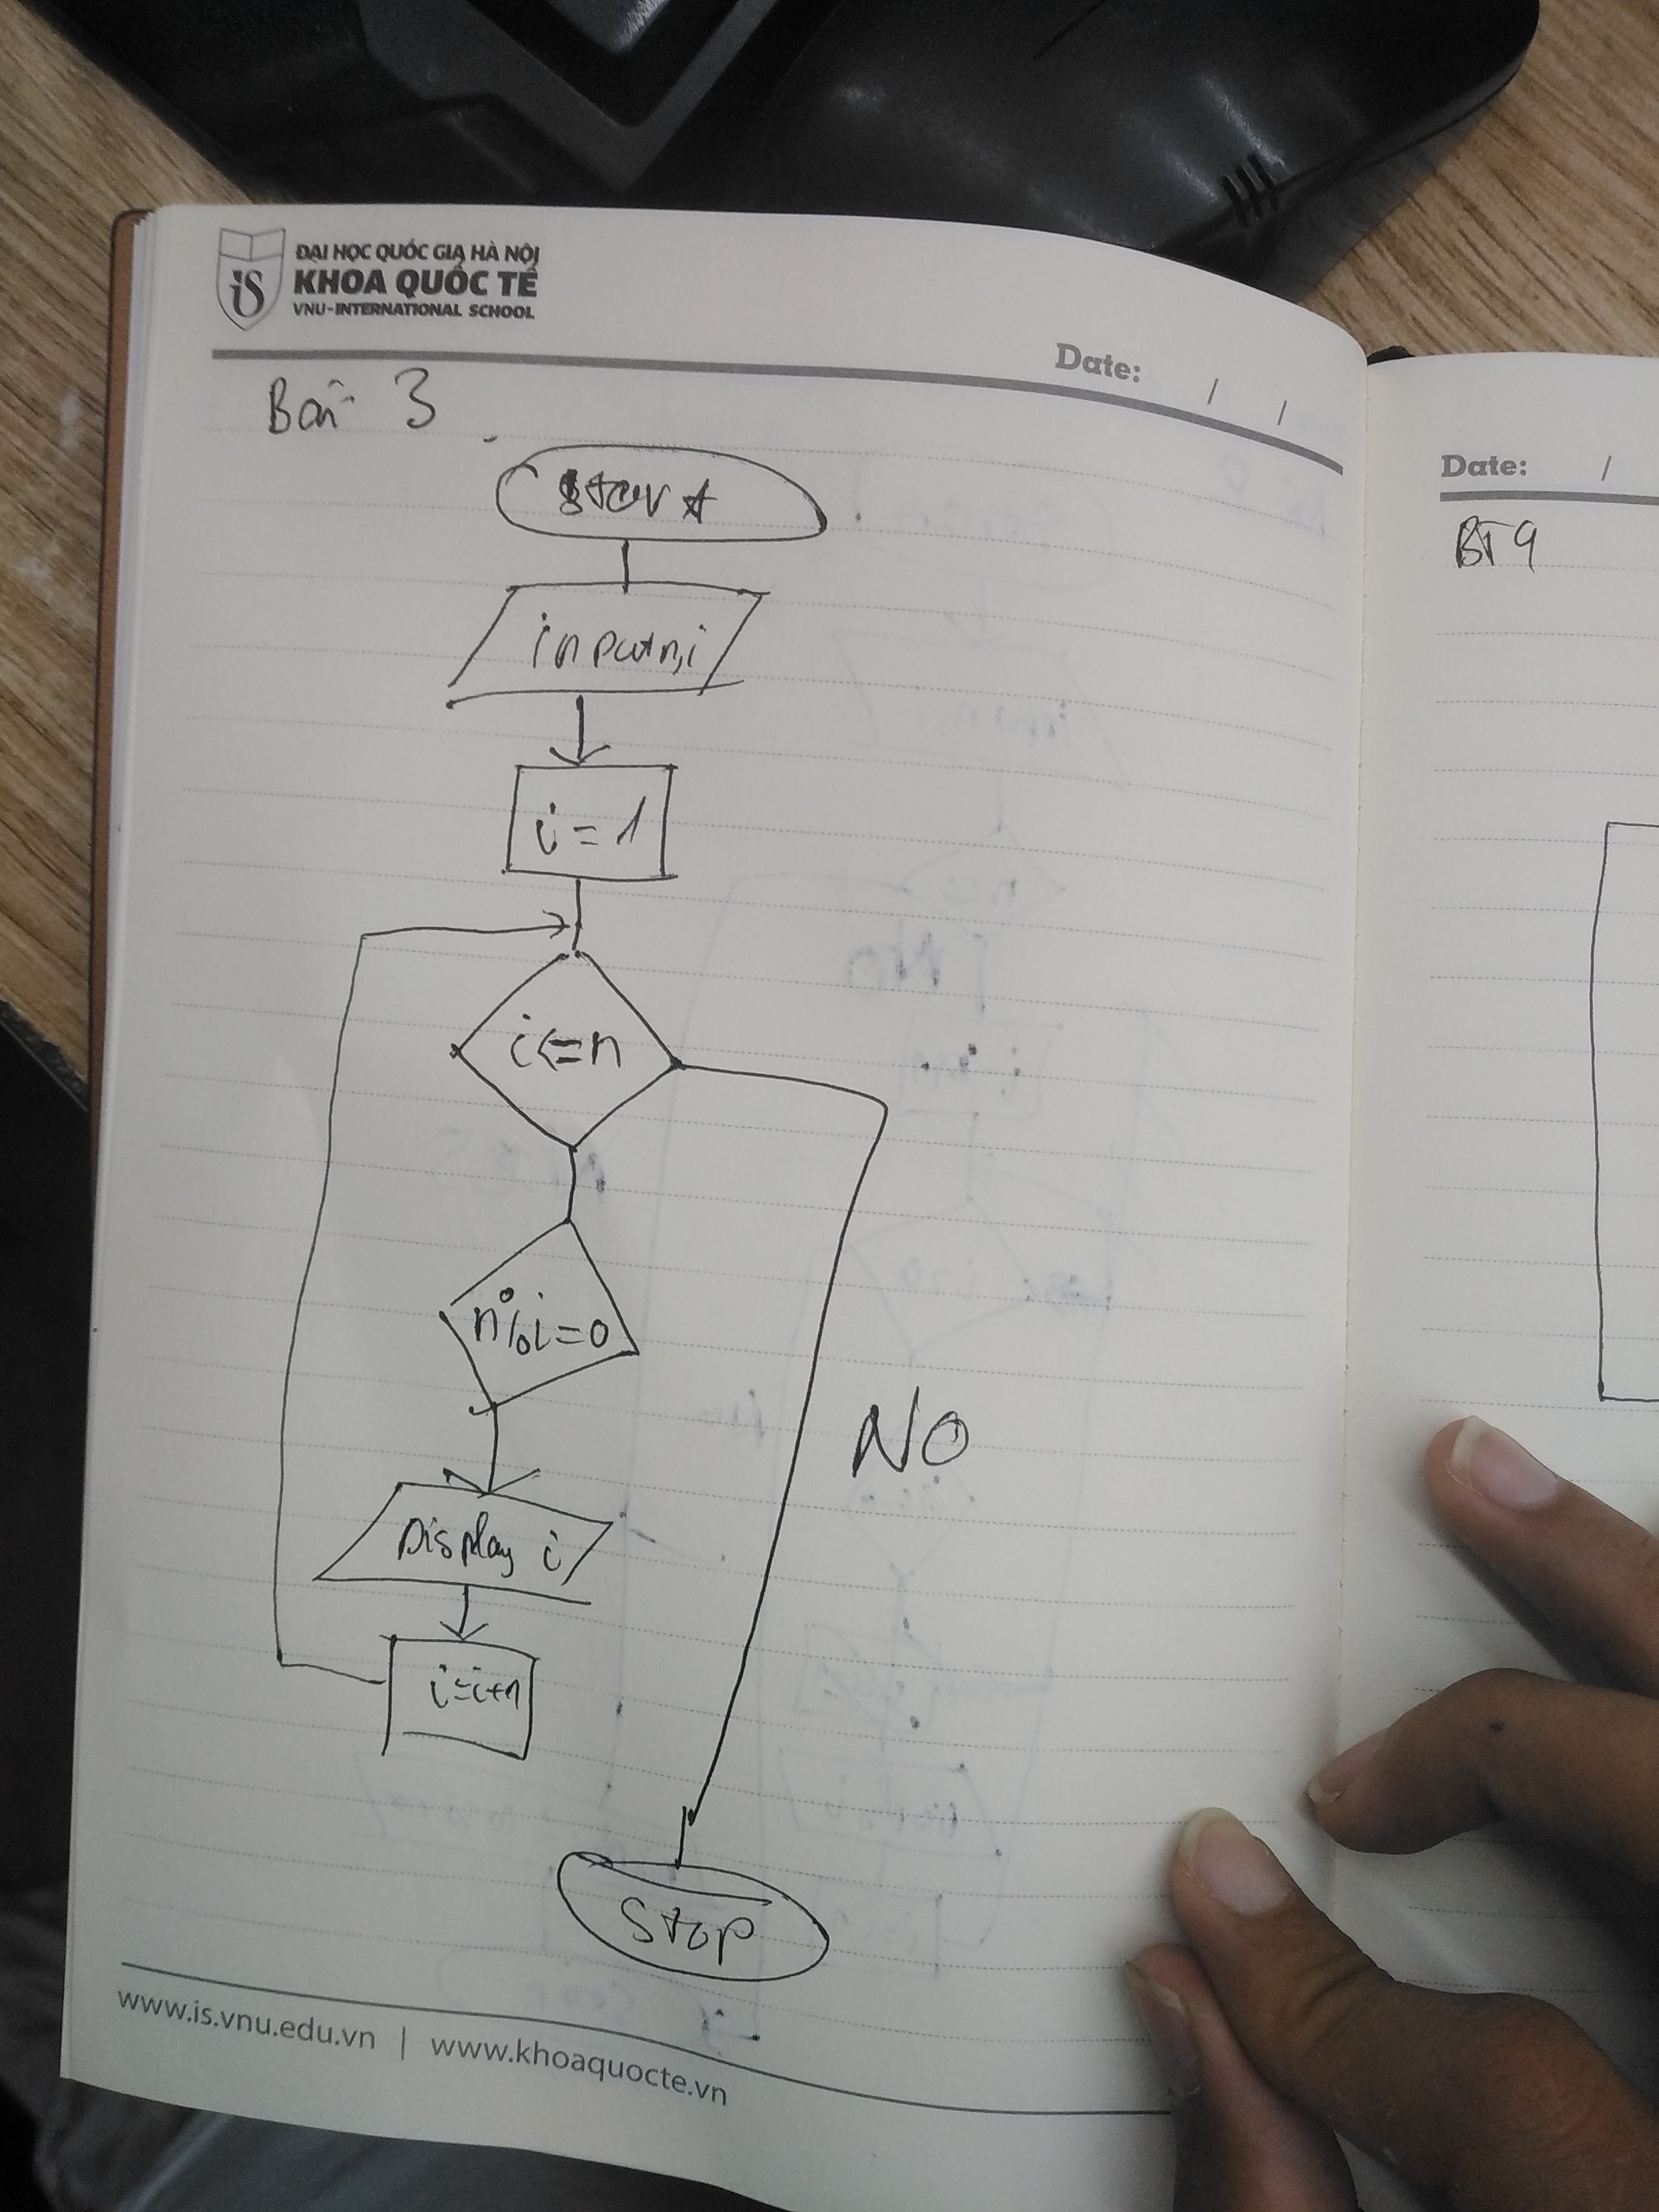 ĐẠI HỌC QUỐC GIA HÀ NỘI
KHOA QUỐC TẾ
VNU-INTERNATIONAL SCHOOL
iS
Date: / /
Bài 3
Start
input n,i
i = 1
i<=n
n%i=0
NO
Display i
i=i+1
Stop
www.is.vnu.edu.vn | www.khoaquocte.vn
Date: /
BT 9